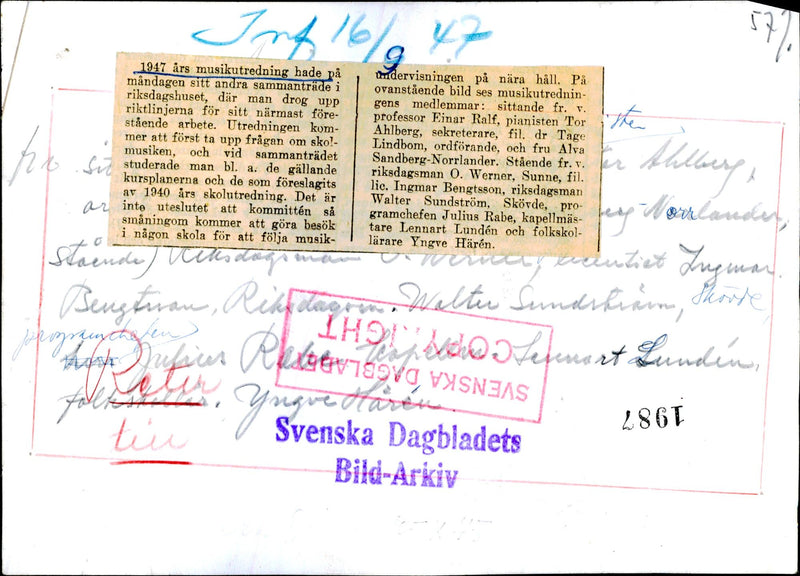 Inf 16/9 47
57%
1947 års musikutredning hade på
måndagen sitt andra sammanträde i
riksdagshuset, där man drog upp
riktlinjerna för sitt närmast före-
stående arbete. Utredningen kom-
mer att först ta upp frågan om skol-
musiken, och vid sammanträdet
studerade man bl. a. de gällande
kursplanerna och de som föreslagits
av 1940 års skolutredning. Det är
inte uteslutet att kommittén så
småningom kommer att göra besök
i någon skola för att följa musik-
undervisningen på nära håll. På
ovanstående bild ses musikutrednin-
gens medlemmar: sittande fr. v.
professor Einar Ralf, pianisten Tor
Ahlberg, sekreterare, fil. dr Tage
Lindbom, ordförande, och fru Alva
Sandberg-Norrlander. Stående fr. v.
riksdagsman O. Werner, Sunne, fil.
lic. Ingmar Bengtsson, riksdagsman
Walter Sundström, Skövde, pro-
gramchefen Julius Rabe, kapellmäs-
tare Lennart Lundén och folkskol-
lärare Yngve Härén.
fr v sit
Ahlberg,
Norrlander,
Stående) Riksdagsman O. Werner, licentiat Ingmar
Bengtsson, Riksdagsm. Walter Sundström, Skövde,
programchefen
Julius Rabe, Kapellm. Lennart Lundén,
folkskollär. Yngve Härén.
Retur
till
SVENSKA DAGBLADET
COPYRIGHT
1987
Svenska Dagbladets
Bild-Arkiv